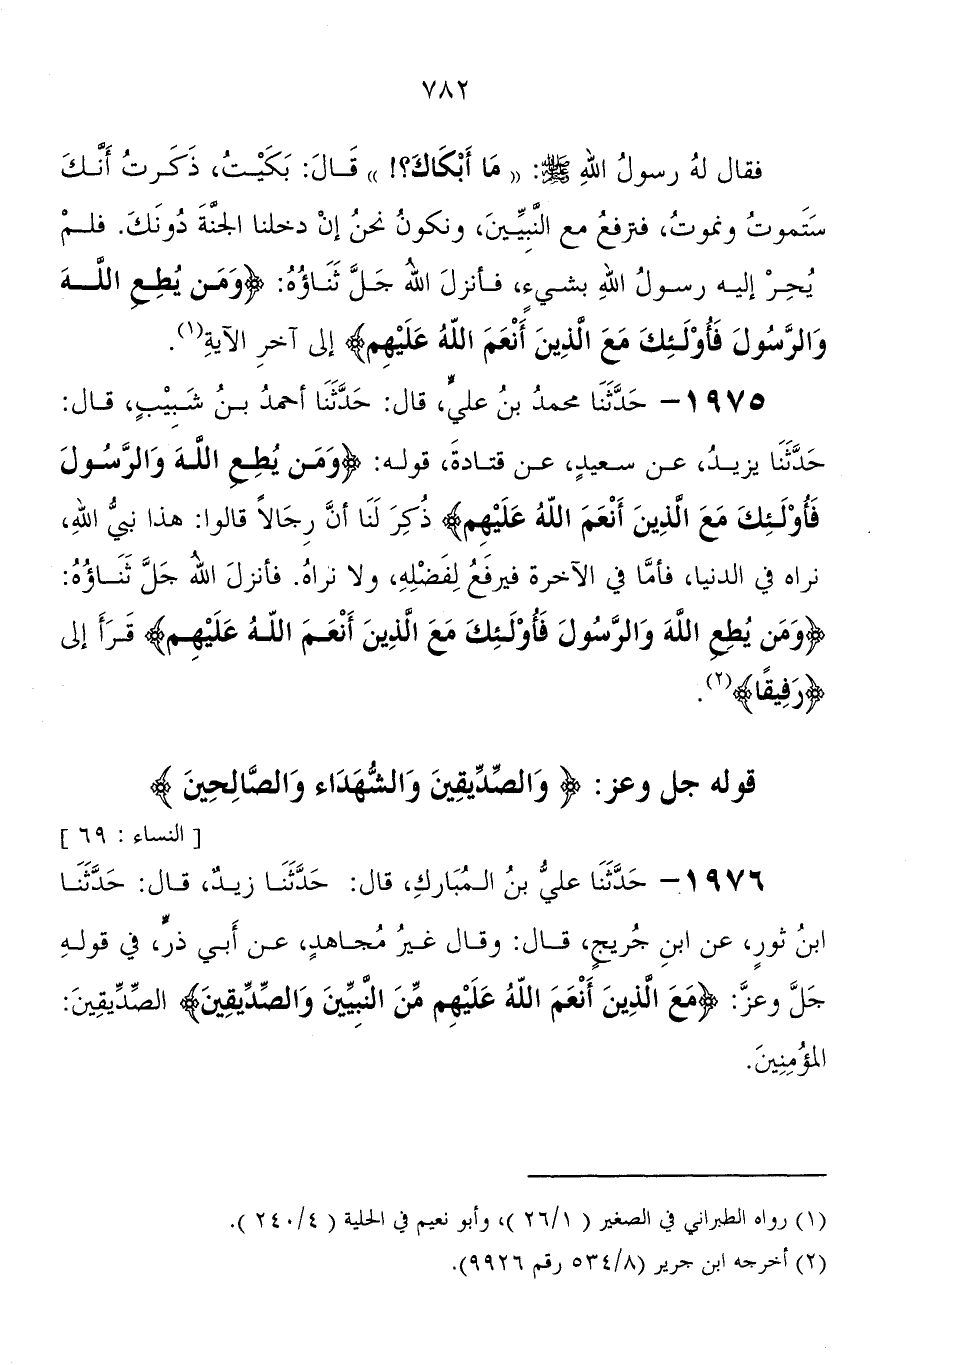 ٧٨٢
فقال لهُ رسولُ اللهِ ﷺ: « مَا أَبْكَاكَ؟! » قَـالَ: بَكَيْـتُ، ذَكَـرتُ أَنَّـكَ
سَتَموتُ ونموتُ، فترفعُ مع النَّبِيِّـينَ، ونكونُ نحنُ إنْ دخلنا الجنَّةَ دُونَكَ. فلـمْ
يُحِـرْ إليـه رسـولُ اللهِ بشـيءٍ، فـأنزلَ اللهُ جَـلَّ ثَنَـاؤُهُ: ﴿وَمَـن يُطِـعِ اللَّـهَ
وَالرَّسُولَ فَأُوْلَـئِكَ مَعَ الَّذِينَ أَنْعَمَ اللّهُ عَلَيْهِم﴾ إلى آخرِ الآيةِ(١).
١٩٧٥– حَدَّثَنَا محمدُ بنُ عليٍّ، قال: حَدَّثَنَا أحمدُ بـنُ شَـبِيْبٍ، قـال:
حَدَّثَنَا يزيـدُ، عـن سـعيدٍ، عـن قتـادةَ، قولـه: ﴿وَمَـن يُطِـعِ اللَّـهَ وَالرَّسُـولَ
فَأُوْلَـئِكَ مَعَ الَّذِينَ أَنْعَمَ اللّهُ عَلَيْهِم﴾ ذُكِرَ لَنَا أنَّ رِجَالاً قالوا: هذا نبيُّ اللهِ،
نراه في الدنيا، فأمَّا في الآخرة فيرفَعُ لِفَضْلِهِ، ولا نراهُ. فأنزلَ اللهُ جَلَّ ثَنَـاؤُهُ:
﴿وَمَن يُطِعِ اللَّهَ وَالرَّسُولَ فَأُوْلَـئِكَ مَعَ الَّذِينَ أَنْعَـمَ اللّـهُ عَلَيْهِـم﴾ قَـرَأَ إلى
﴿رَفِيقًا﴾(٢).
قوله جل وعز: ﴿ وَالصِّدِّيقِينَ وَالشُّهَدَاء وَالصَّالِحِينَ ﴾
[ النساء : ٦٩ ]
١٩٧٦– حَدَّثَنَا عليُّ بنُ الـمُبَاركِ، قال: حَدَّثَنَـا زيـدٌ، قـال: حَدَّثَنَـا
ابنُ ثورٍ، عن ابنِ جُريجٍ، قـال: وقـال غـيرُ مُجـاهدٍ، عـن أَبـي ذرٍّ، في قولـهِ
جَلَّ وعزَّ: ﴿مَعَ الَّذِينَ أَنْعَمَ اللّهُ عَلَيْهِم مِّنَ النَّبِيِّينَ وَالصِّدِّيقِينَ﴾ الصِّدِّيقِينَ:
المؤْمِنِينَ.
(١) رواه الطبراني في الصغير ( ٢٦/١ )، وأبو نعيم في الحلية ( ٢٤٠/٤ ).
(٢) أخرجه ابن جرير (٥٣٤/٨ رقم ٩٩٢٦).